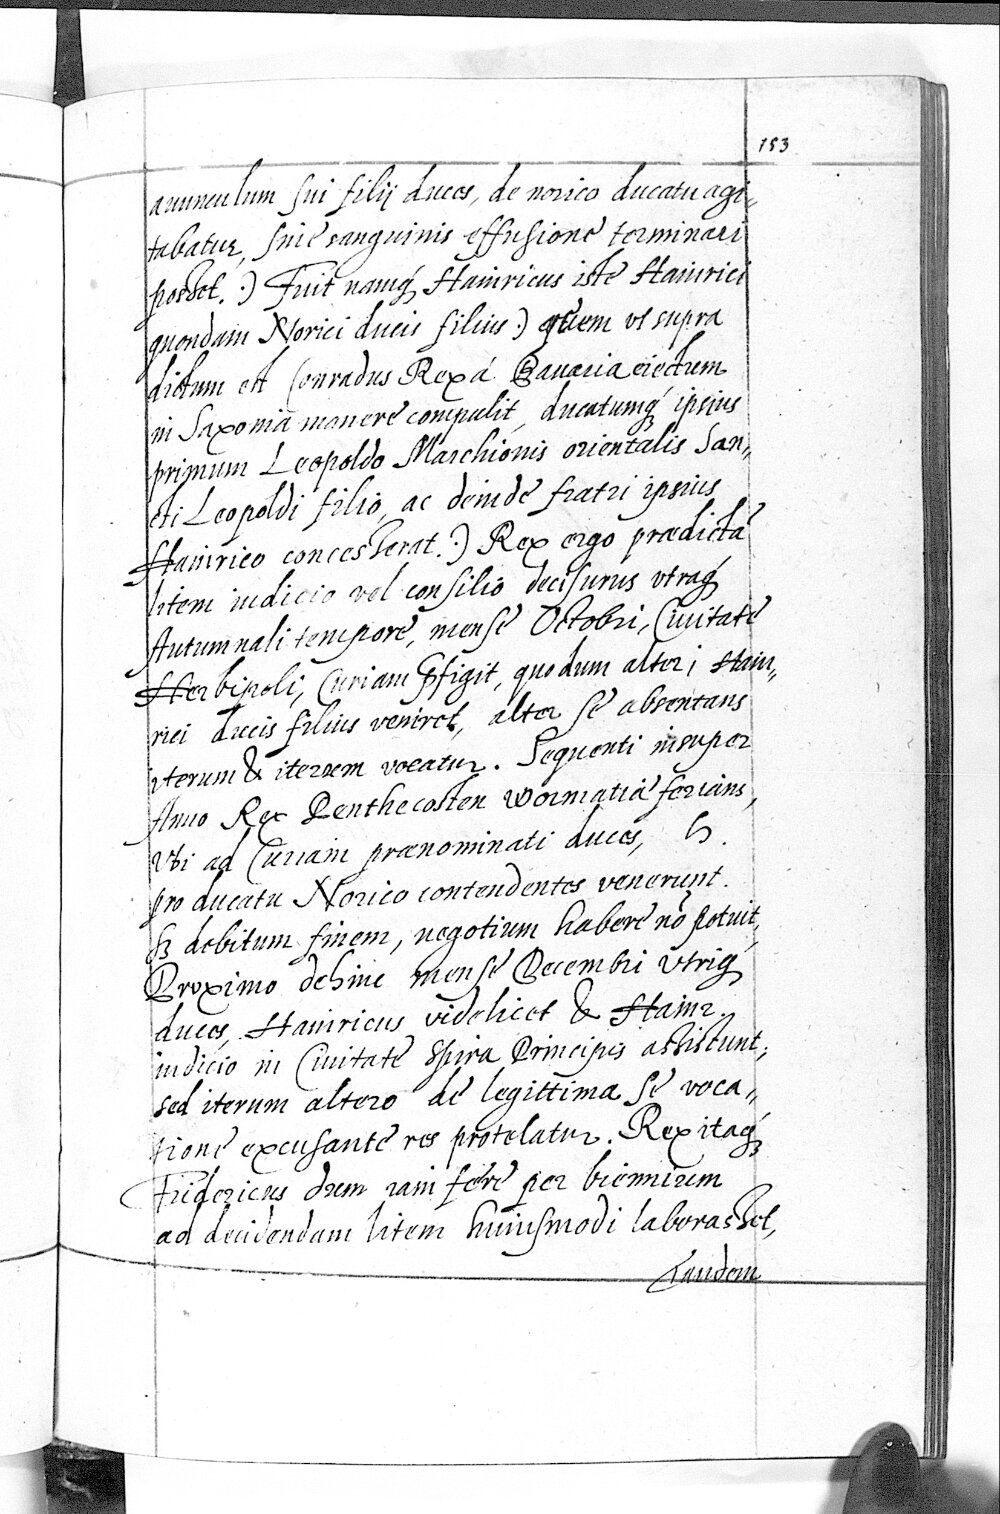 153
avunculum sui filij duces, de norico ducatu agi„
tabatur, sine sanguinis effusione terminari
posset. :) Fuit namq́ Hainricus iste Hainrici
quondam Norici ducis filius :) quem vt supra
dictum est Conradus Rex á Bauaria eiectum
in Saxonia manere compulit, ducatumq́ ipsius
primum Leopoldo Marchionis orientalis San„
cti Leopoldi filio, ac deinde fratri ipsius
Hainrico concesserat. :) Rex ergo prædictã
litem iudicio vel consilio decisurus vtraq́
Autumnali tempore, mense Octobri, Ciuitate
Herbipoli, Curiam p̃figit, quo dum alter i Hain„
rici ducis filius veniret, alter se absentans
iterum & iterum vocatur. Sequenti insuper
Anno Rex Penthecosten Wormatiæ ferians,
Vbi ad Curiam prænominati duces, h.
pro ducatu Norico contendentes venerunt.
sz debitum finem, negotium habere nõ potuit,
Proximo dehinc mense Decembri Vtriq́
duces, Hainricus videlicet & Hainr.
iudicio in Ciuitate Spira Principis assistunt,
sed iterum altero de legittima se voca„
tione excusante res protelatur. Rex itaq́
Fridericus dum iam fere per biennium
ad decidendam litem huiusmodi laborasset,
Tandem